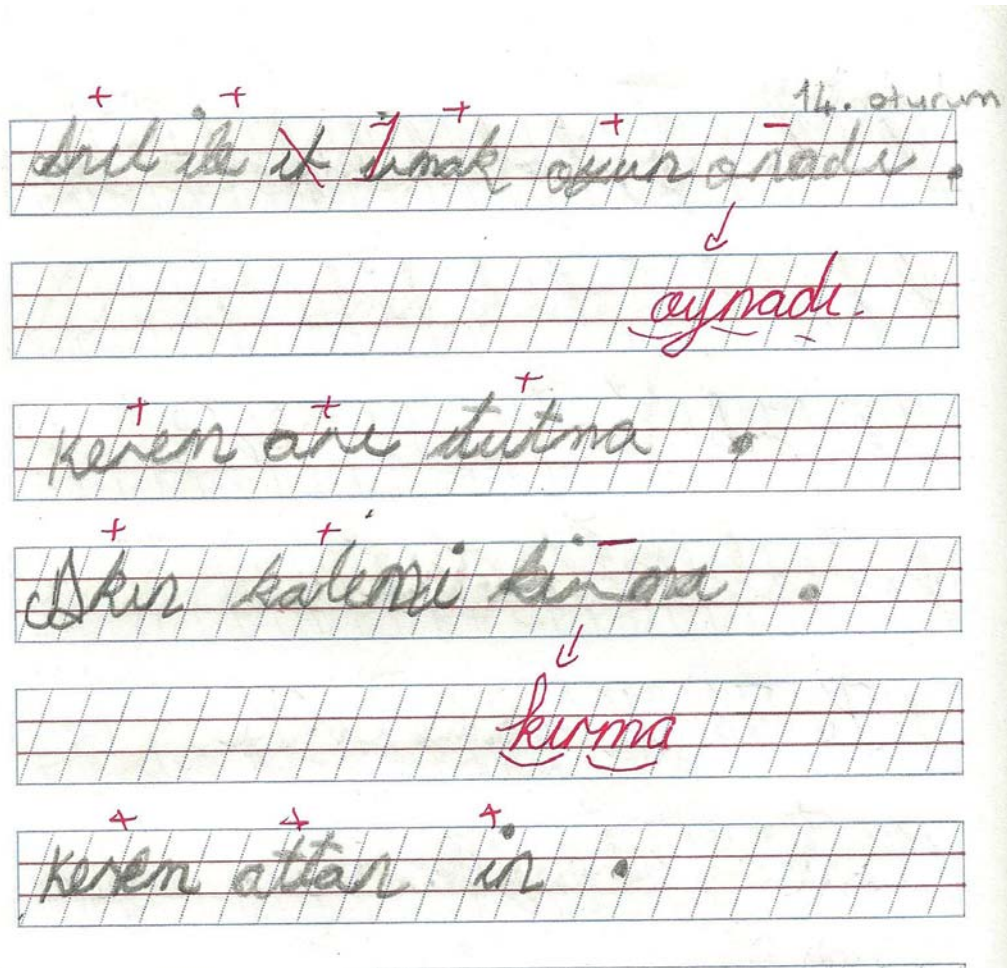 14. oturum
Anıl ile it ırmak oyun onadı .
oynadı.
Kerem arı tutma .
Akın kalemi kin ma .
kırma
Kerem attan in .